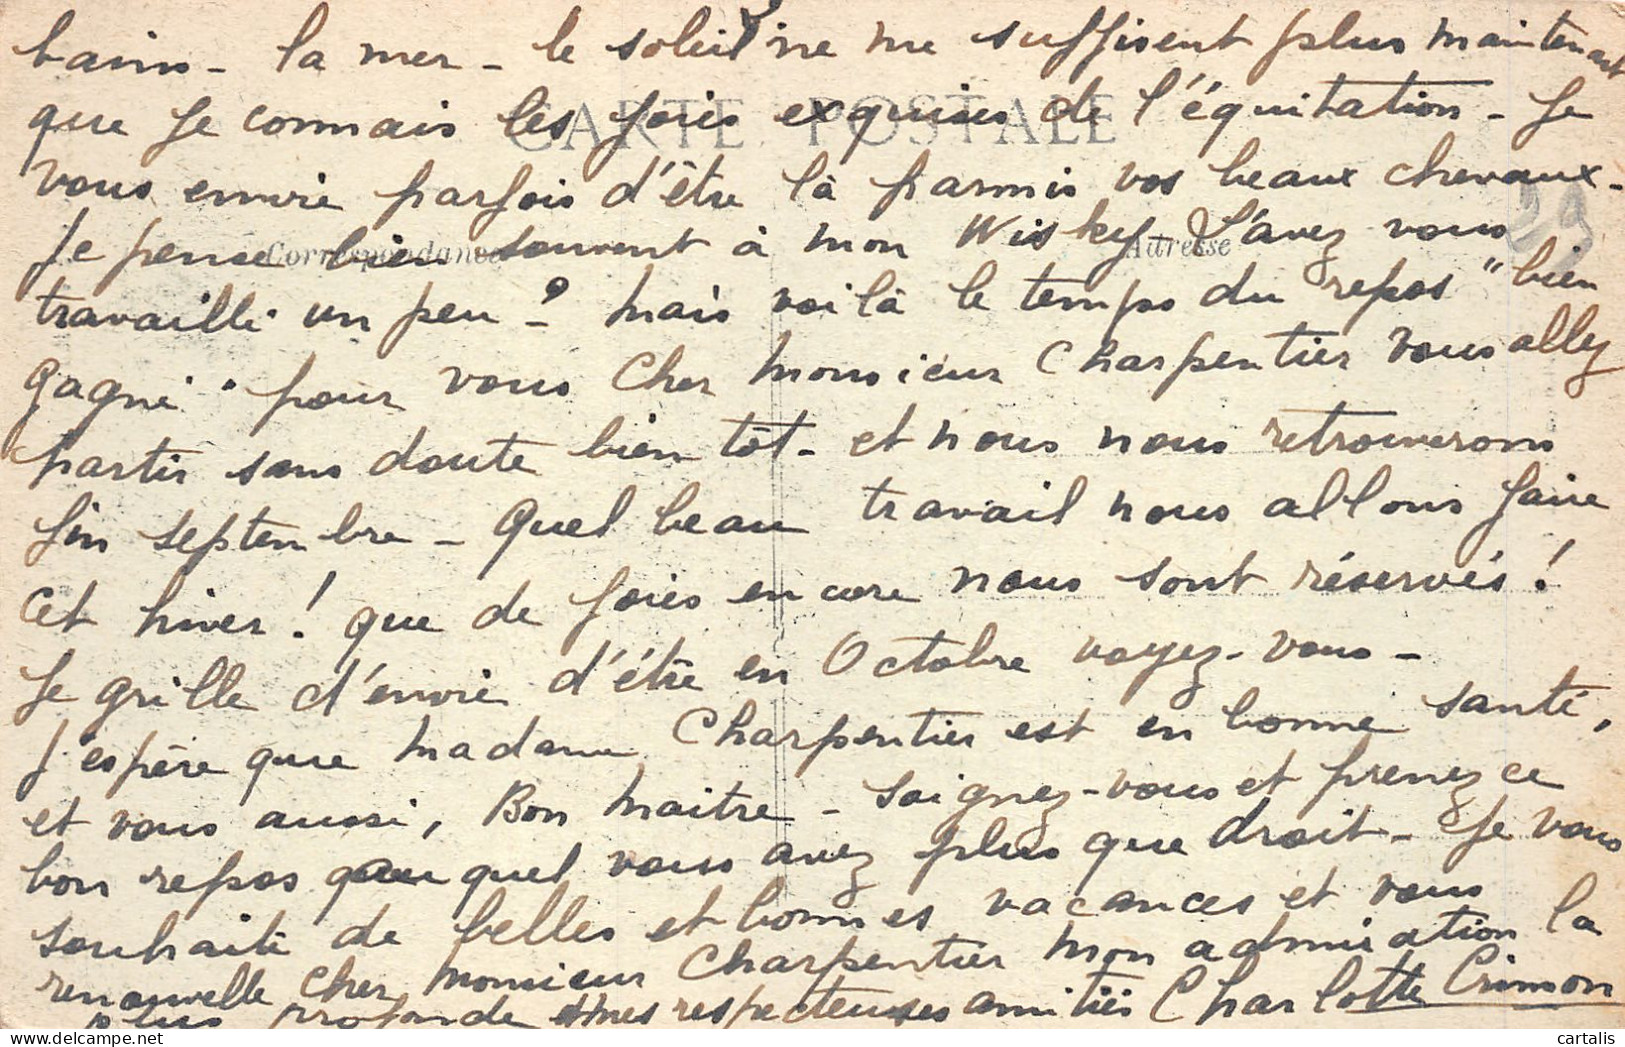 bains - la mer - le soleil ne me suffisent plus maintenant
que je connais les joies exquises de l'équitation - Je
CARTE POSTALE
vous envie parfois d'être là parmis vos beaux chevaux -
Je pense bien souvent à mon Wisky - L'avez vous
Correspondance
Adresse
travaillé un peu ? Mais voilà le temps du repos "bien
gagné" pour vous Cher Monsieur Charpentier Vous allez
partir sans doute bien tôt - et nous nous retrouverons
fin septembre - Quel beau travail nous allons faire
cet hiver ! que de joies encore nous sont réservés !
Je grille d'envie d'étre en Octobre voyez-vous -
J'espère que Madame Charpentier est en bonne santé,
et vous aussi, Bon Maitre - Soignez-vous et prenez ce
bon repos auquel vous avez plus que droit - Je vous
souhaite de belles et bonnes vacances et vous
renouvelle cher Monsieur Charpentier mon admiration la
plus profonde et mes respectueuses amitiés Charlotte Crimon
cartalis